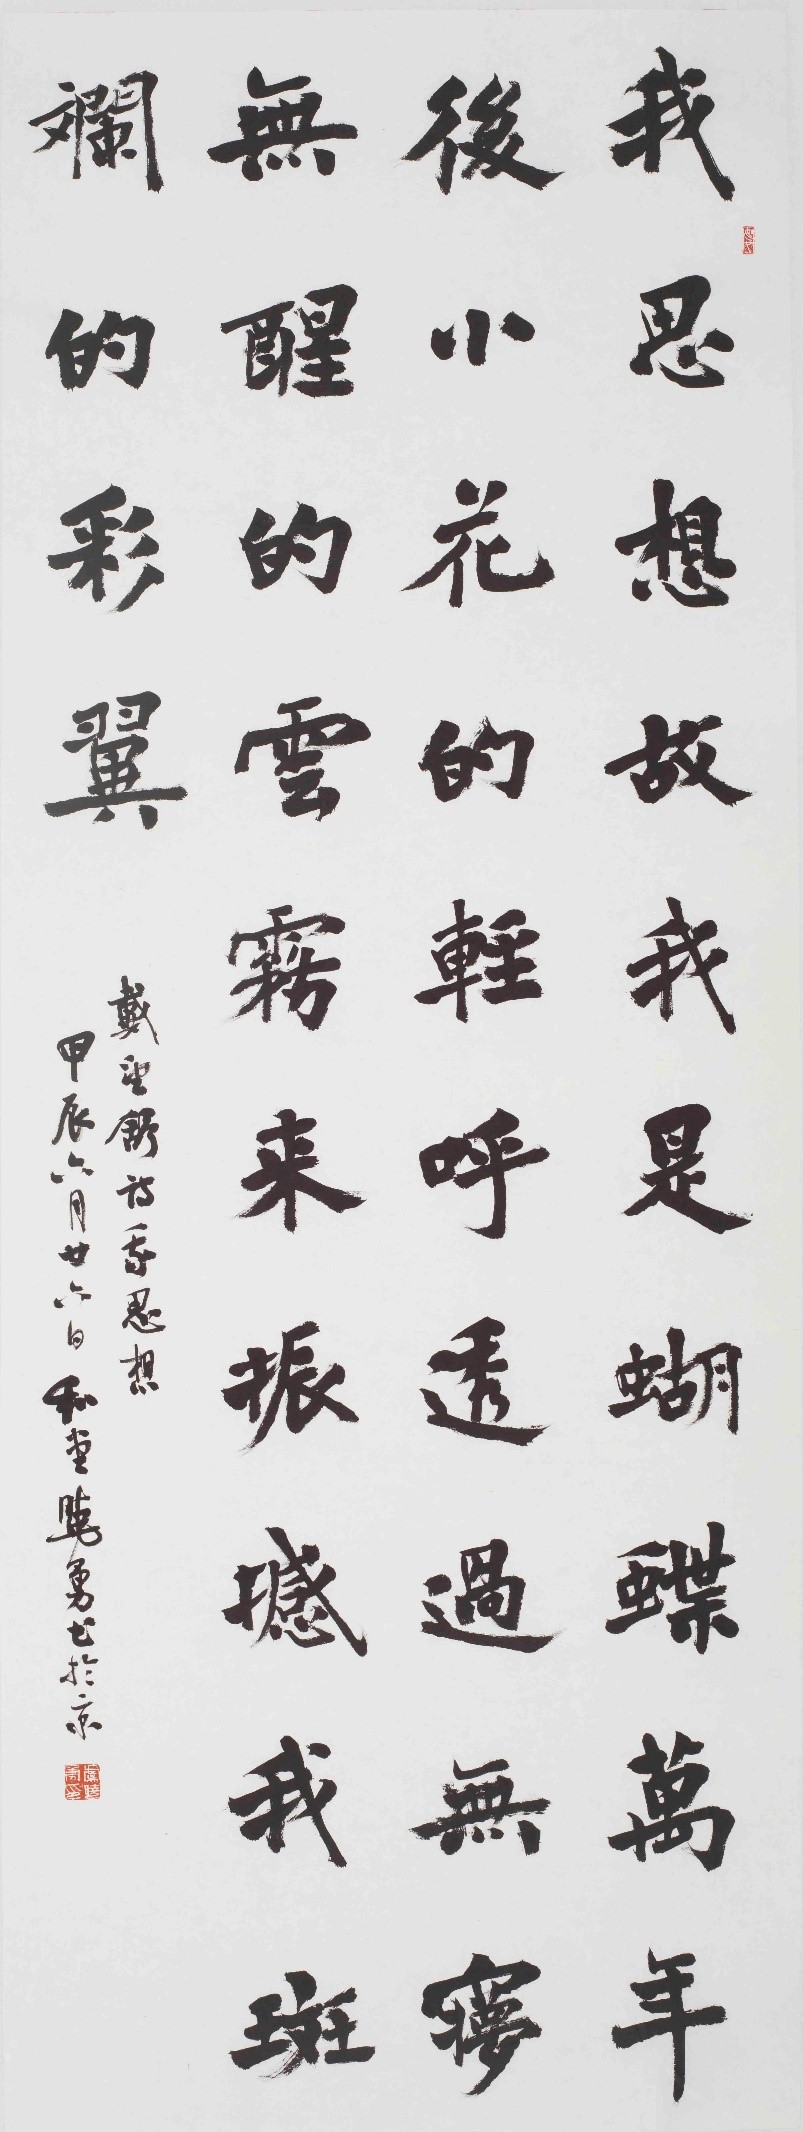 我思想故我是蝴蝶萬年
後小花的輕呼透過無寱
無醒的雲霧来振撼我斑
斕的彩翼
戴望舒詩我思想
甲辰六月廿六日和堂曉勇书於京